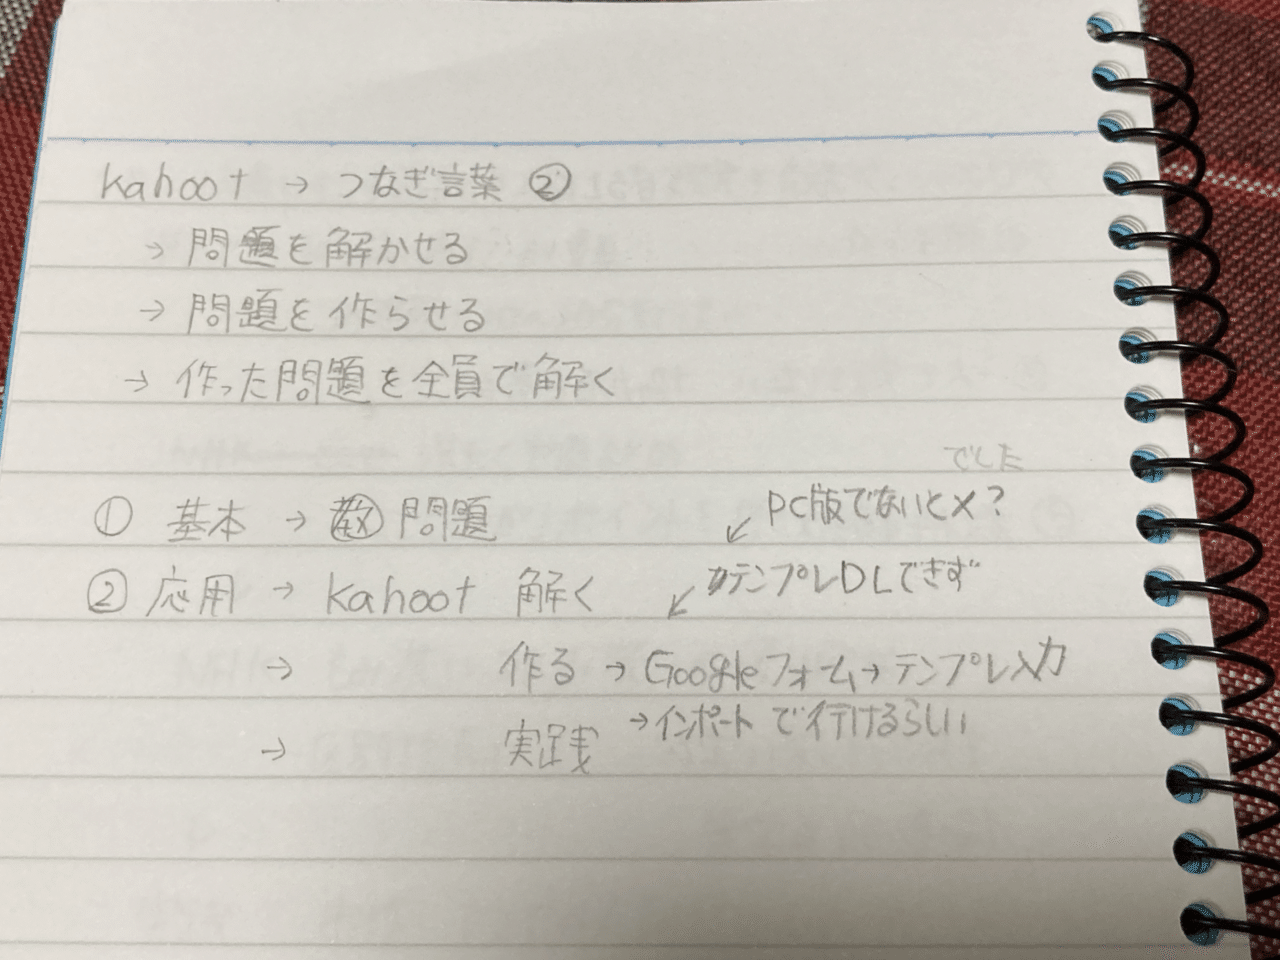 kahoot → つなぎ言葉 ②
→ 問題を解かせる
→ 問題を作らせる
→ 作った問題を全員で解く
でした
PC版でないと×?
① 基本 → 教 問題
テンプレDLできず
② 応用 → kahoot 解く
→ 作る → Googleフォーム→テンプレ入力
→インポートで行けるらしい
→ 実践